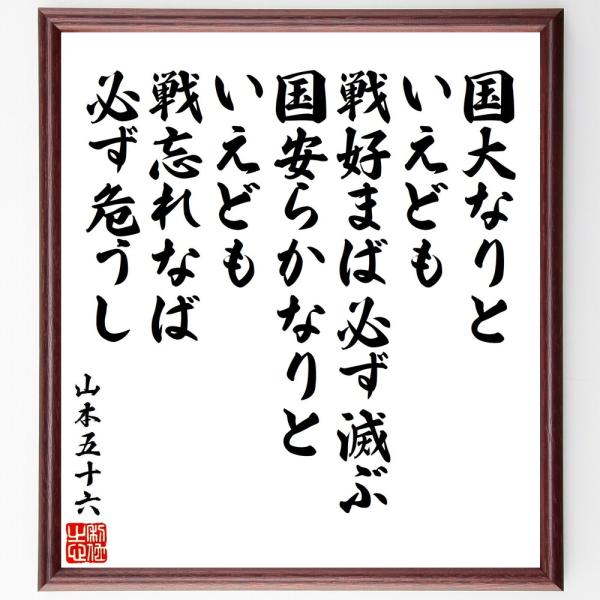 国大なりと
いえども
戦好まば必ず滅ぶ
国安らかなりと
いえども
戦忘れなば
必ず危うし
山本五十六